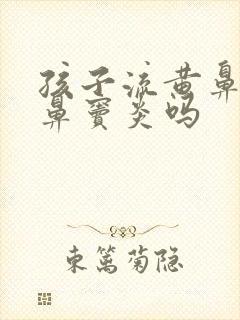 孩子流黄鼻
鼻窦炎吗
东篱菊隐